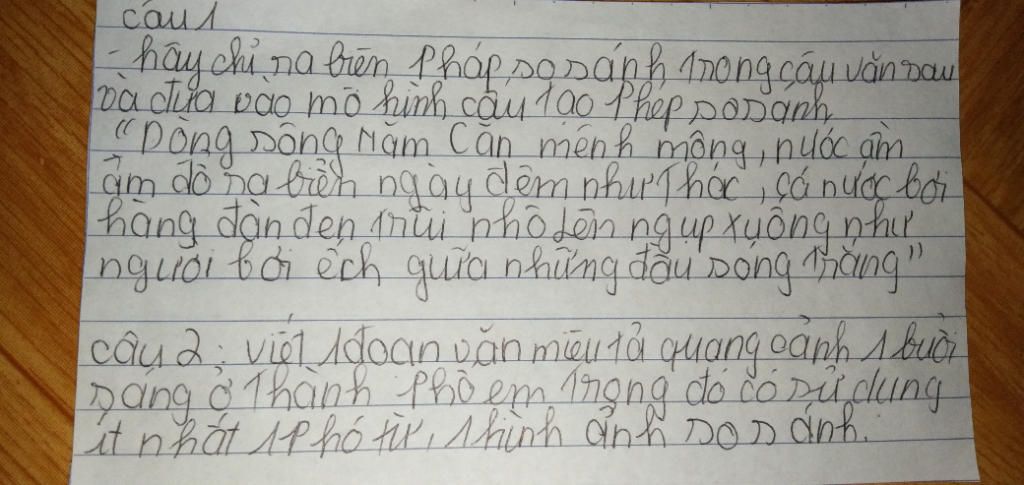 câu 1
- hãy chỉ ra biện pháp so sánh trong câu văn sau
và dựa vào mô hình cấu tạo phép so sánh
"Dòng sông Năm Căn mênh mông, nước ầm
ầm đổ ra biển ngày đêm như thác, cá nước bơi
hàng đàn đen trũi nhô lên ngụp xuống như
người bơi ếch giữa những đầu sóng trắng"
câu 2: viết 1 đoạn văn miêu tả quang cảnh 1 buổi
sáng ở thành phố em trong đó có sử dụng
ít nhất 1 phó từ, 1 hình ảnh so sánh.